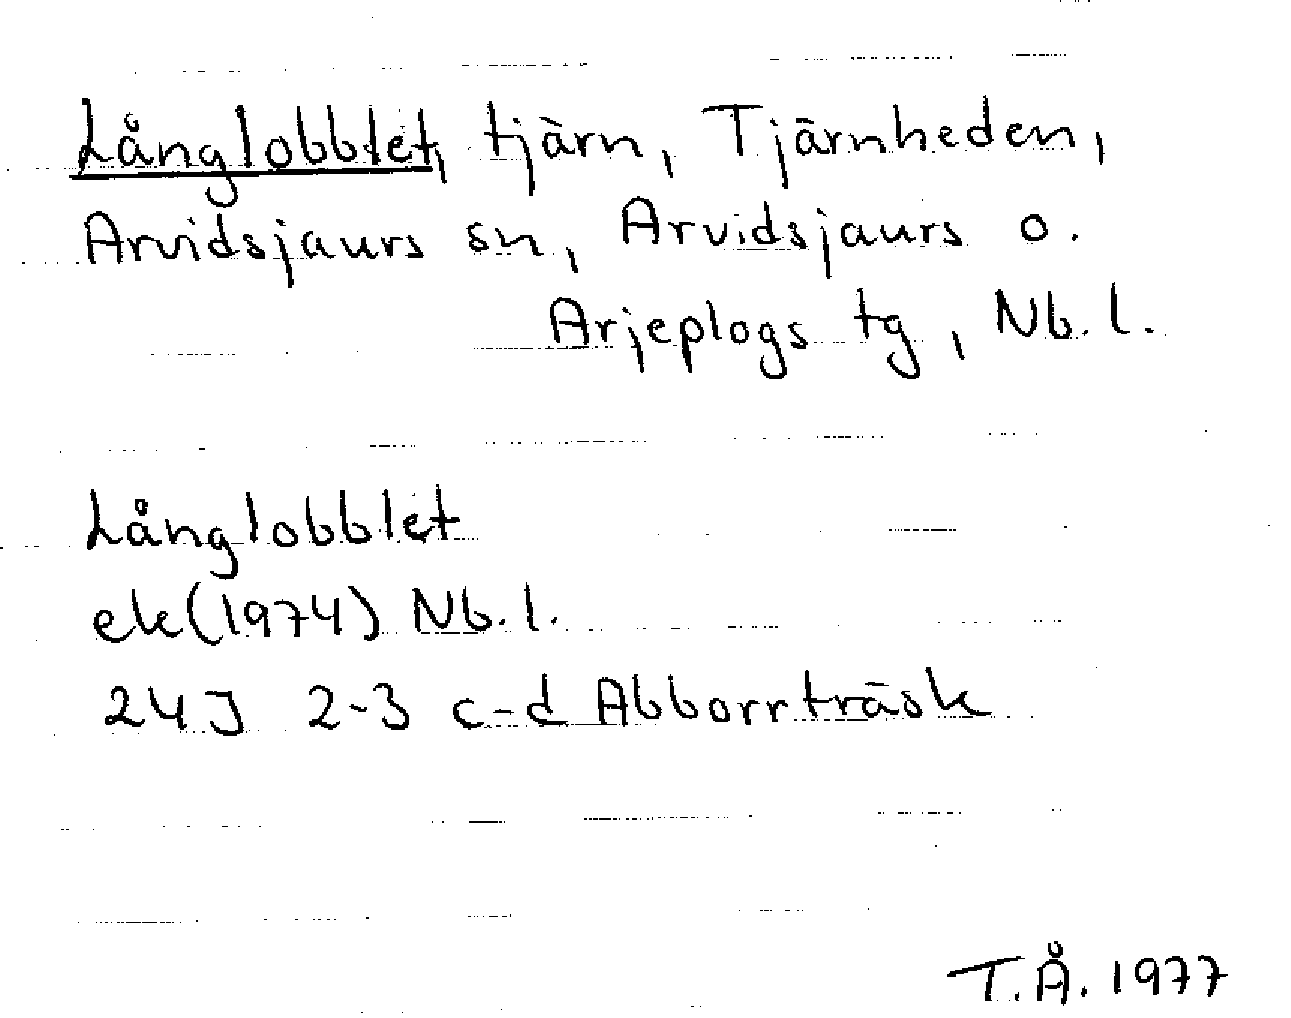 Långlobblet, tjärn, Tjärnheden,
Arvidsjaurs sn, Arvidsjaurs o.
Arjeplogs tg, Nb.l.
Långlobblet
ek(1974) Nb.l.
24J 2-3 c-d Abborrträsk
T.Å. 1977